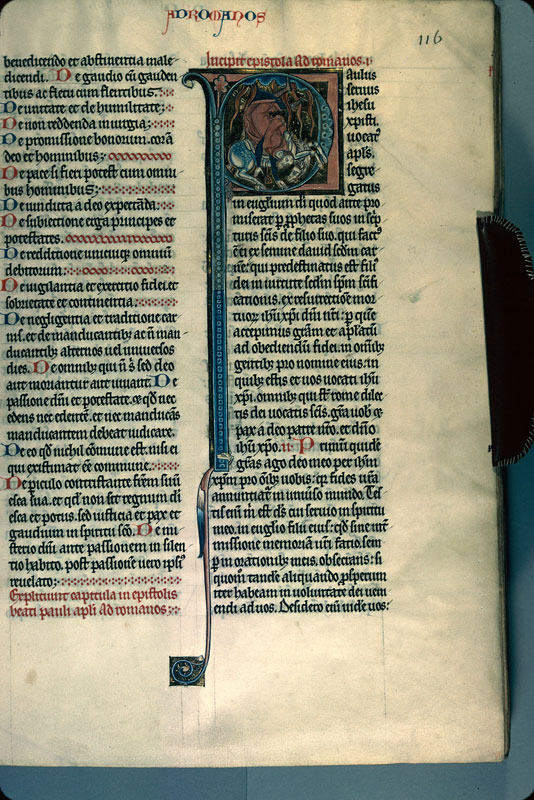 AD ROMANOS
116
benedicendo et abstinentia male-
dicendi. De gaudio cū gauden
tibus ac fletu cum flentibus.
De unitate et de humilitate;
De non reddenda iniuria;
De promissione bonorum. corā
deo et hominibus;
De pace si fieri potest cum omni
bus hominibus;
De uindicta a deo expectāda;
De subiectione erga principes et
potestates.
De redditione uniuersoꝝ omniū
debitorum;
De uigilantia et exercitio fidei et
sobrietate et continentia.
De negligentia et traditione car
nis. et de manducantibꝫ ac nō man
ducantibꝫ alternos uel uniuersos
dies. De omnibꝫ qui nō s̄ sed deo
aut moriantur aut uiuant. De
passione dn̄i et potestate. et qd̄ nec
edens nec edentē. et nec manducās
manducantem debeat iudicare.
De eo qd̄ nichil cōmune est. nisi ei
qui existimat ēē commune.
De piculo contristantis frem suū
esca sua. et qd̄ non sit regnum dī
esca et potus. sed iusticia et pax et
gaudium in spiritu sc̄o. De mi
sterio dn̄i ante passionem in silen
tio habito. post passionē uero ipsiꝰ
reuelato;
Expliciunt capitula in epistolis
beati pauli apl̄i ad romanos;
Incipit epistola ad romanos. i
Paulus
seruus
ihesu
xpisti.
uocatꝰ
apl̄s.
segre
gatus
in eugl̄ium dī quod ante pro
miserat ꝑ ꝓphetas suos in sc̄p
turis sc̄is de filio suo. qui factꝰ
ē ei ex semine dauid scd̄m car
nē. qui predestinatus est filiꝰ
dei in uirtute scd̄m sp̄m sc̄ifi
cationis. ex resurrectiōe mor
tuoꝝ ih̄u xp̄i dn̄i nr̄i: ꝑ quē
accepimus grām et aplātū
ad obediendū fidei. in om̄ibꝫ
gentibꝫ pro nomine eius. in
quibꝫ estis et uos uocati ih̄u
xp̄i. omnibꝫ qui st̄ rome dilec
tis dei uocatis sc̄is. grā uob̄ et
pax a deo patre nr̄o. et dn̄o
ih̄u xp̄o. ii. Primum quidē
grās ago deo meo per ih̄m
xp̄m pro om̄ibꝫ uobis. qꝫ fides ur̄a
annuntiat̄ in uniuso mundo. Tes
tis eni m̄ est d̄s cui seruio in spiritu
meo. in eugl̄io filii eiuſ. qd̄ sine int̄
missione memoriā ur̄i facio. sem
ꝑ in orationibꝫ meis. obsecrans. si
quom̄ tandē aliquando ꝓsperum
iter habeam in uoluntate dei ueni
endi ad uos. Desidero eni uidere uos: